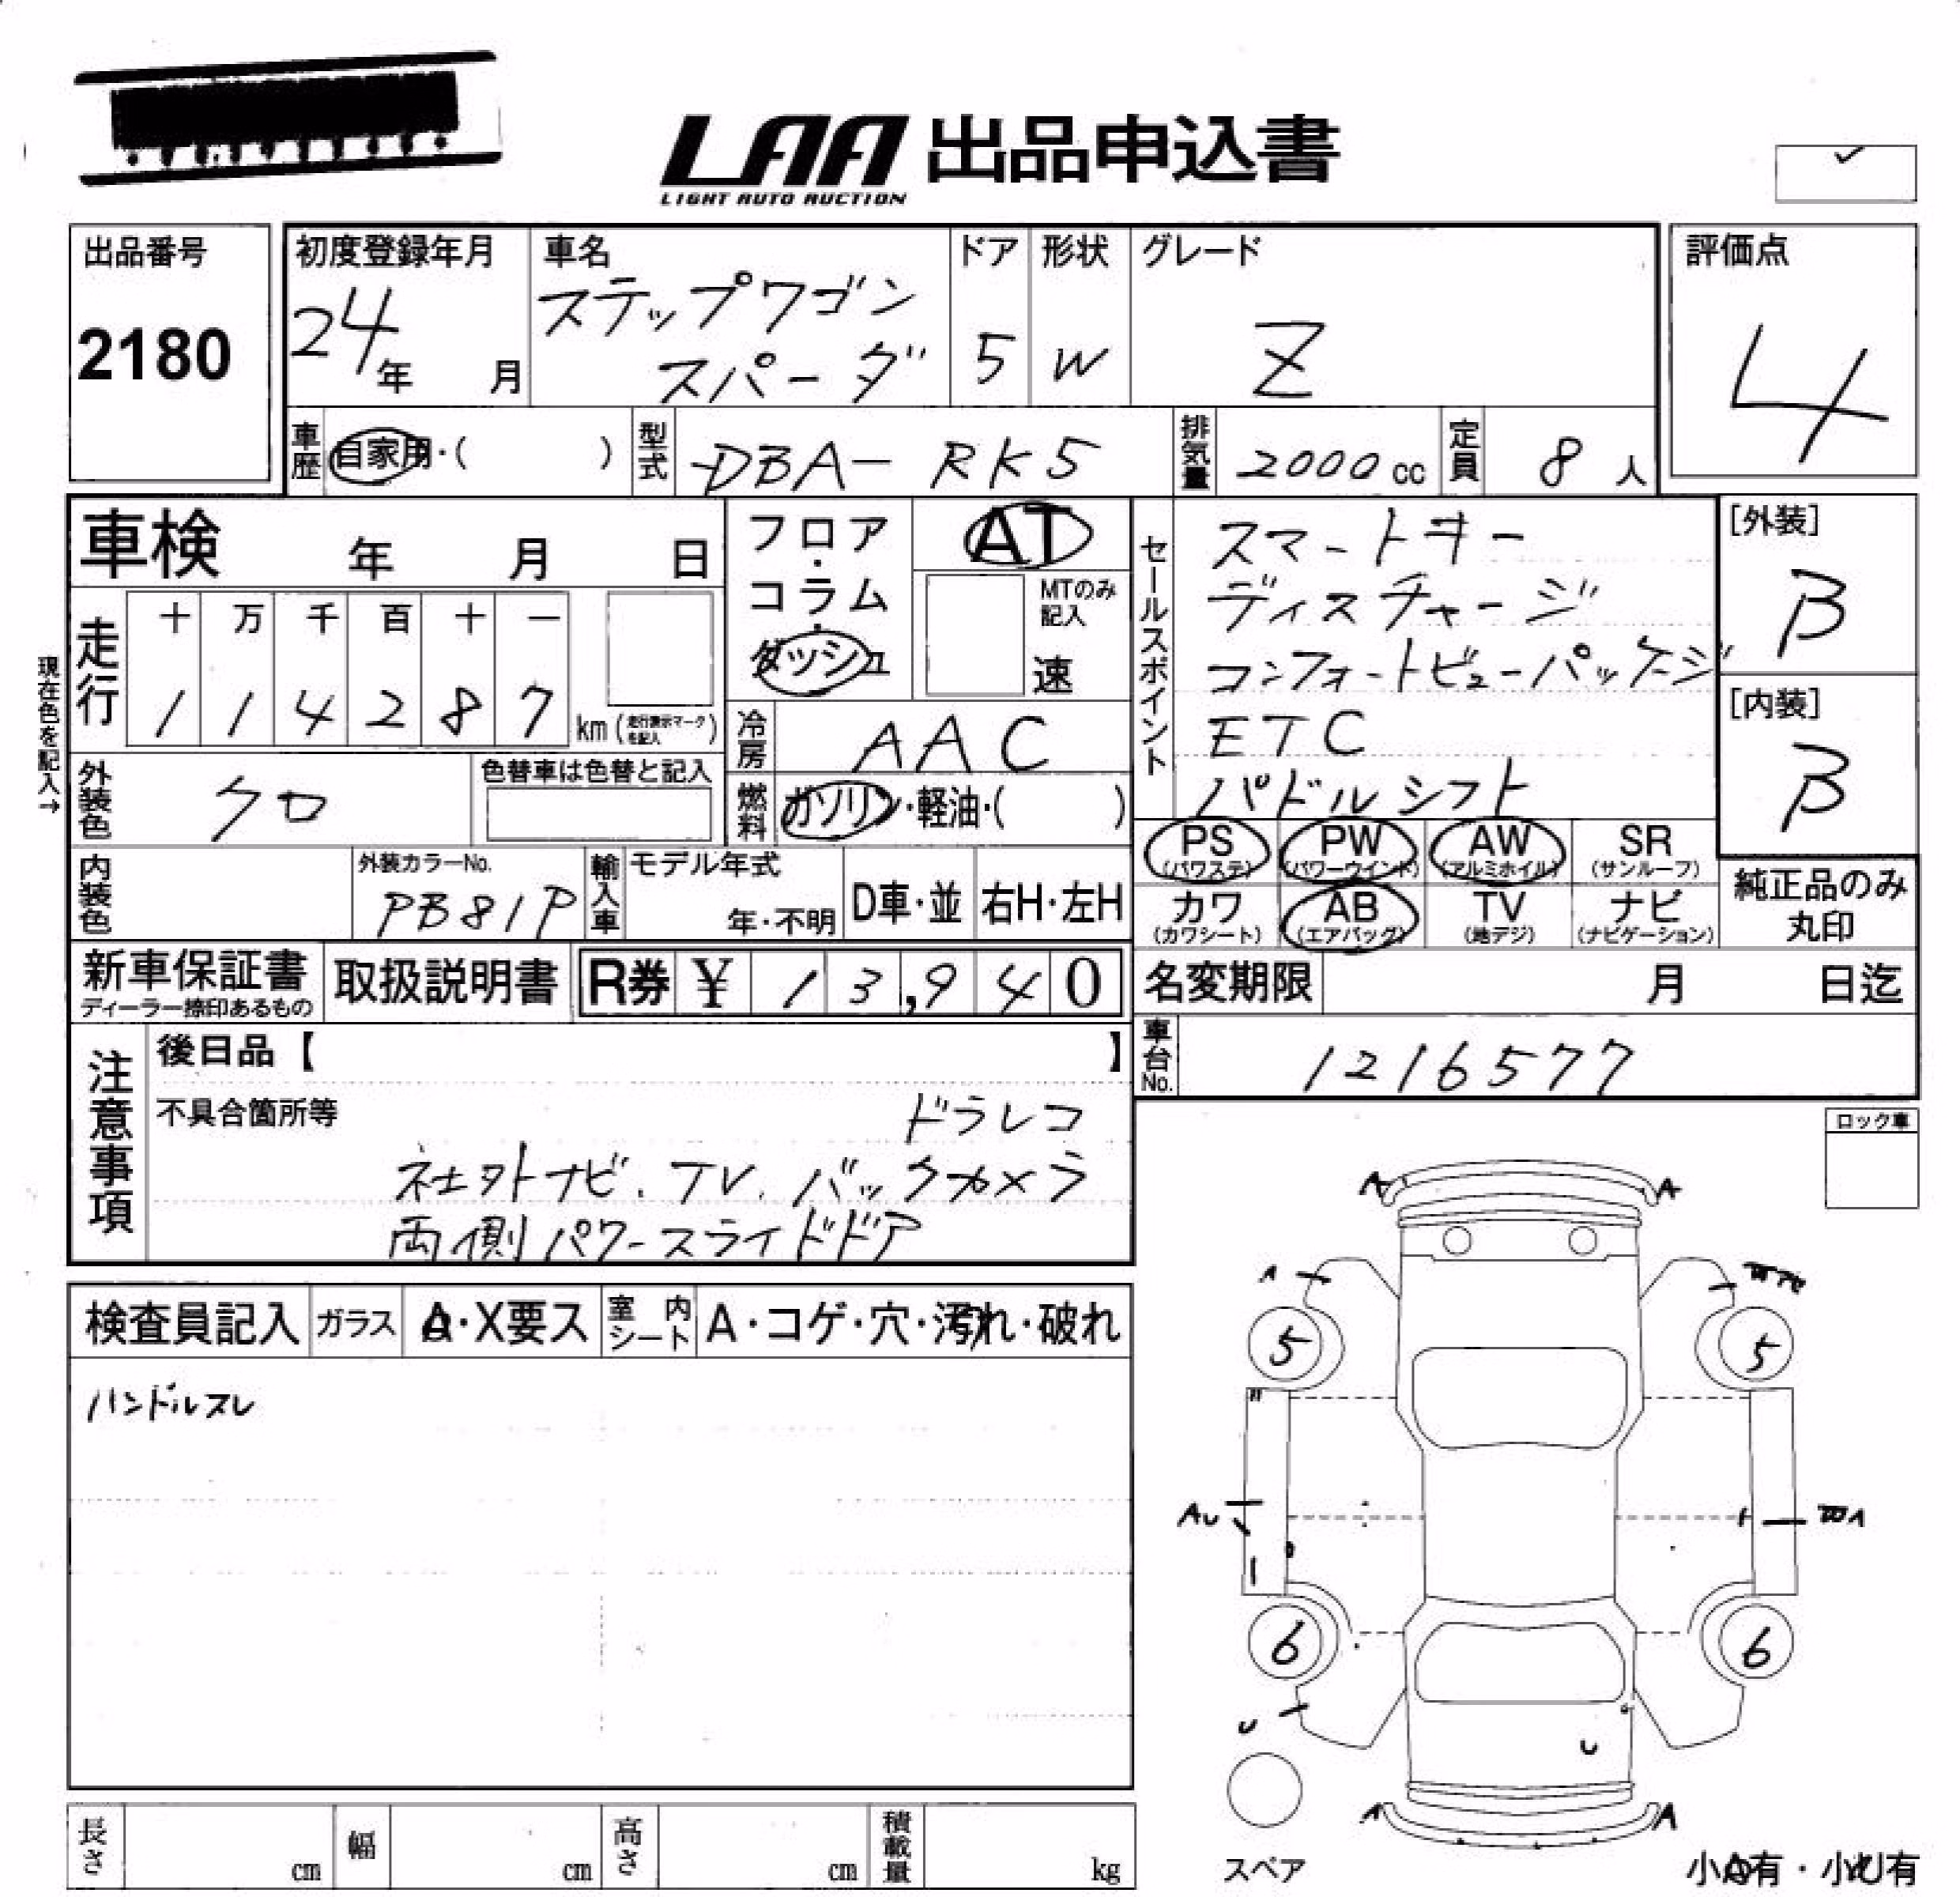 LAA 出品申込書
LIGHT AUTO AUCTION
出品番号
2180
初度登録年月
24年 月
車名
ステップワゴン
スパーダ
ドア
5
形状
W
グレード
Z
評価点
4
車歴 自家用・( )
型式 DBA-RK5
排気量 2000cc
定員 8人
車検 年 月 日
フロア・コラム・ダッシュ
AT
MTのみ記入
速
セールスポイント
スマートキー
ディスチャージ
コンフォートビューパッケージ
ETC
パドルシフト
[外装]
B
[内装]
B
現在色を記入→
走行
十 万 千 百 十 一
1 1 4 2 8 7 km (走行表示マークを記入)
冷房 AAC
外装色 クロ
色替車は色替と記入
燃料 ガソリン・軽油・( )
PS (パワステ) PW (パワーウインド) AW (アルミホイル) SR (サンルーフ)
カワ (カワシート) AB (エアバッグ) TV (地デジ) ナビ (ナビゲーション)
純正品のみ
丸印
内装色
外装カラーNo.
PB81P
輸入車 モデル年式
年・不明
D車・並
右H・左H
新車保証書
ディーラー捺印あるもの
取扱説明書
R券 ¥ 13,940
名変期限 月 日迄
車台No. 1216577
注意事項
後日品【 】
不具合箇所等
ドラレコ
社外ナビ、TV、バックカメラ
両側パワースライドドア
ロック車
検査員記入
ガラス A・X要ス
室内シート A・コゲ・穴・汚れ・破れ
ハンドルスレ
A A
A
5 5
AU
6 6
U
U
A A
スペア
小A有・小U有
長さ cm
幅 cm
高さ cm
積載量 kg